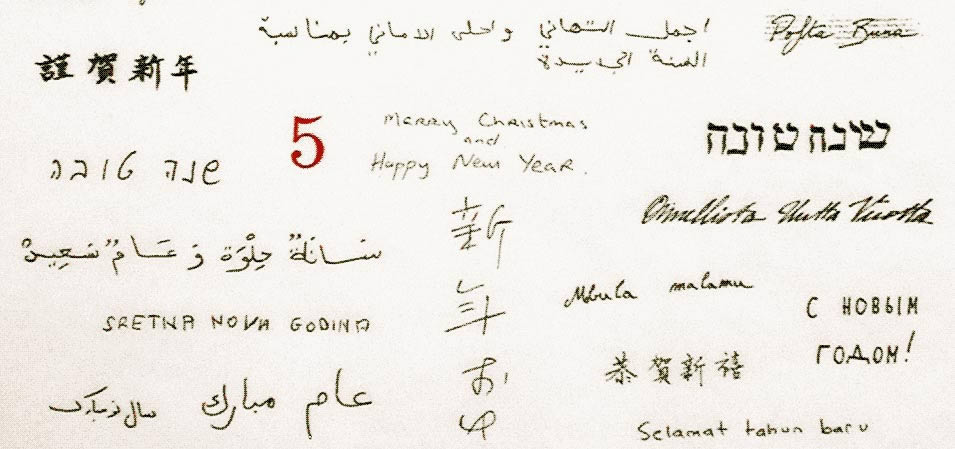 اجمل التهاني واحلى الاماني بمناسبة
السنة الجديدة
Pofta Buna
謹賀新年
5
Merry Christmas
and
Happy New Year.
שנה טובה
שנה טובה
Onnellista Uutta Vuotta
حِلْوَة وَ عَام سَعِيد
新年
Mbula malamu
С НОВЫМ
ГОДОМ!
SRETNA NOVA GODINA
恭賀新禧
عام مبارك
سال نو مبارک
Selamat tahun baru